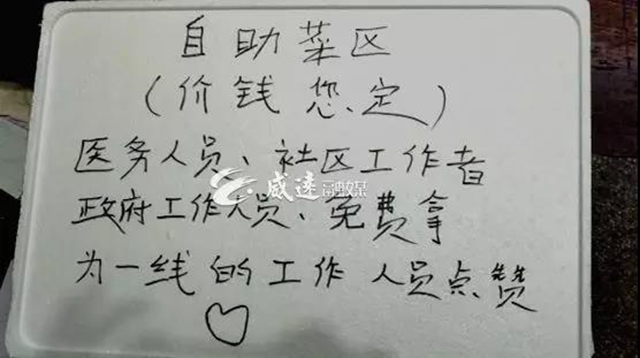 自助菜区
（价钱您定）
医务人员、社区工作者
政府工作人员、免费拿
为一线的工作人员点赞
威远融媒